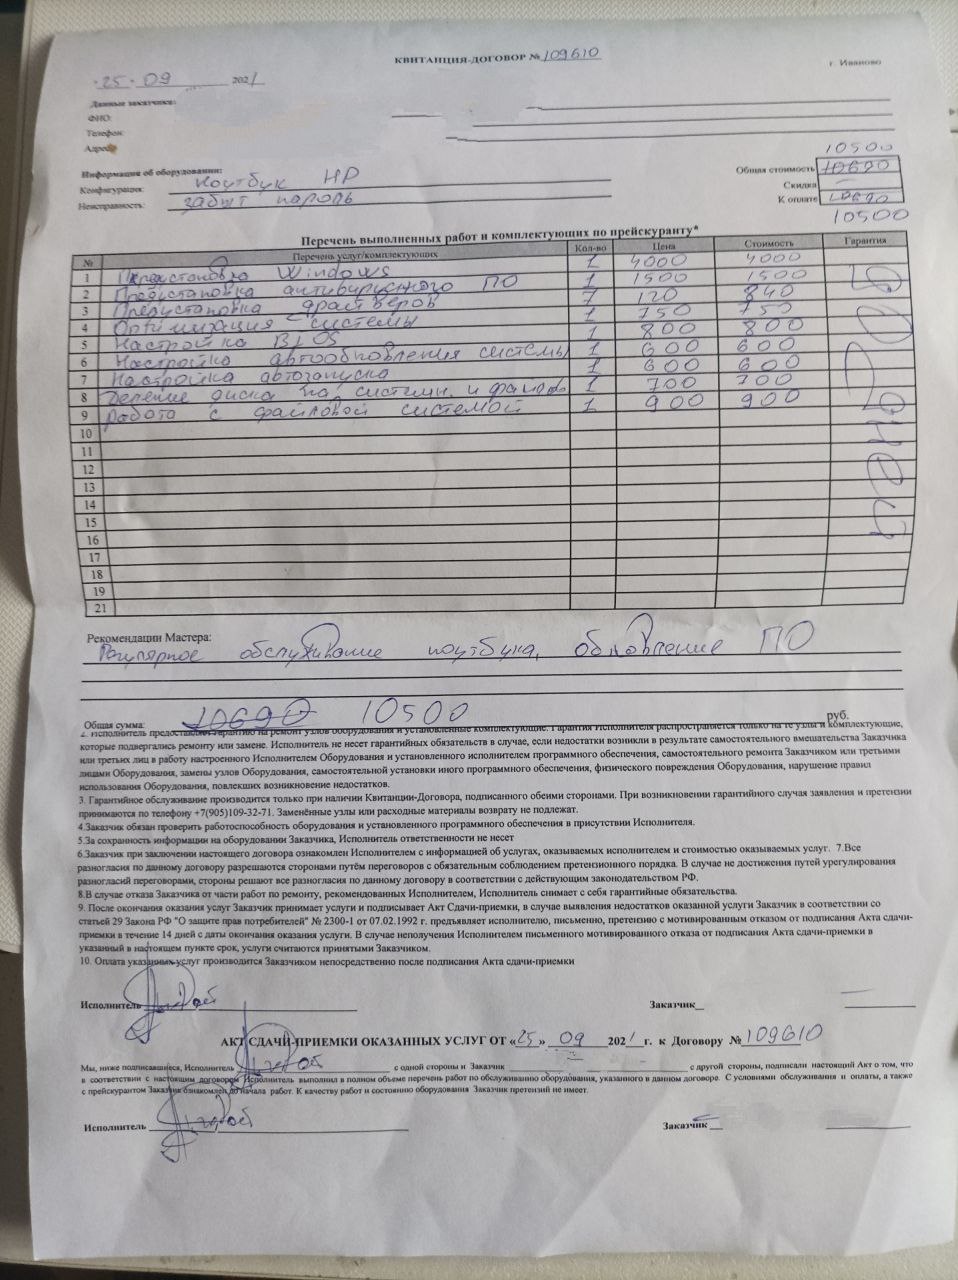 КВИТАНЦИЯ-ДОГОВОР № 109610
г. Иваново
25 09 2021
Данные заказчика:
ФИО:
Телефон:
Адрес
Информация об оборудовании:
Конфигурация: Ноутбук HP
Неисправность: забыт пароль
10500
Общая стоимость 10690
Скидка —
К оплате 10690
10500
Перечень выполненных работ и комплектующих по прейскуранту*
№ Перечень услуг/комплектующих Кол-во Цена Стоимость Гарантия
1 Переустановка Windows 1 4000 4000
2 Предустановка антивирусного ПО 1 1500 1500
3 Предустановка драйверов 7 120 840
4 Оптимизация системы 1 750 750
5 Настройка BIOS 1 800 800
6 Настройка автообновления системы 1 600 600
7 Настройка автозапуска 1 600 600
8 Деление диска на систем. и файлов 1 700 700
9 Работа с файловой системой 1 900 900
10
11
12
13
14
15
16
17
18
19
21
дней
Рекомендации Мастера:
Регулярное обслуживание ноутбука, обновление ПО
Общая сумма: 10690 10500 руб.
2. Исполнитель предоставляет гарантию на ремонт узлов оборудования и установленные комплектующие. Гарантия Исполнителя распространяется только на те узлы и комплектующие,
которые подвергались ремонту или замене. Исполнитель не несет гарантийных обязательств в случае, если недостатки возникли в результате самостоятельного вмешательства Заказчика
или третьих лиц в работу настроенного Исполнителем Оборудования и установленного исполнителем программного обеспечения, самостоятельного ремонта Заказчиком или третьими
лицами Оборудования, замены узлов Оборудования, самостоятельной установки иного программного обеспечения, физического повреждения Оборудования, нарушение правил
использования Оборудования, повлекших возникновение недостатков.
3. Гарантийное обслуживание производится только при наличии Квитанции-Договора, подписанного обеими сторонами. При возникновении гарантийного случая заявления и претензии
принимаются по телефону +7(905)109-32-71. Заменённые узлы или расходные материалы возврату не подлежат.
4.Заказчик обязан проверить работоспособность оборудования и установленного программного обеспечения в присутствии Исполнителя.
5.За сохранность информации на оборудовании Заказчика, Исполнитель ответственности не несет
6.Заказчик при заключении настоящего договора ознакомлен Исполнителем с информацией об услугах, оказываемых исполнителем и стоимостью оказываемых услуг. 7.Все
разногласия по данному договору разрешаются сторонами путём переговоров с обязательным соблюдением претензионного порядка. В случае не достижения путей урегулирования
разногласий переговорами, стороны решают все разногласия по данному договору в соответствии с действующим законодательством РФ.
8.В случае отказа Заказчика от части работ по ремонту, рекомендованных Исполнителем, Исполнитель снимает с себя гарантийные обязательства.
9. После окончания оказания услуг Заказчик принимает услуги и подписывает Акт Сдачи-приемки, в случае выявления недостатков оказанной услуги Заказчик в соответствии со
статьей 29 Закона РФ "О защите прав потребителей" № 2300-1 от 07.02.1992 г. предъявляет исполнителю, письменно, претензию с мотивированным отказом от подписания Акта сдачи-
приемки в течение 14 дней с даты окончания оказания услуги. В случае неполучения Исполнителем письменного мотивированного отказа от подписания Акта сдачи-приемки в
указанный в настоящем пункте срок, услуги считаются принятыми Заказчиком.
10. Оплата указанных услуг производится Заказчиком непосредственно после подписания Акта сдачи-приемки
Исполнитель Заказчик
АКТ СДАЧИ-ПРИЕМКИ ОКАЗАННЫХ УСЛУГ ОТ «25» 09 2021 г. к Договору № 109610
Мы, ниже подписавшиеся, Исполнитель с одной стороны и Заказчик с другой стороны, подписали настоящий Акт о том, что
в соответствии с настоящим договором Исполнитель выполнил в полном объеме перечень работ по обслуживанию оборудования, указанного в данном договоре. С условиями обслуживания и оплаты, а также
с прейскурантом Заказчик ознакомлен до начала работ. К качеству работ и состоянию оборудования Заказчик претензий не имеет.
Исполнитель Заказчик